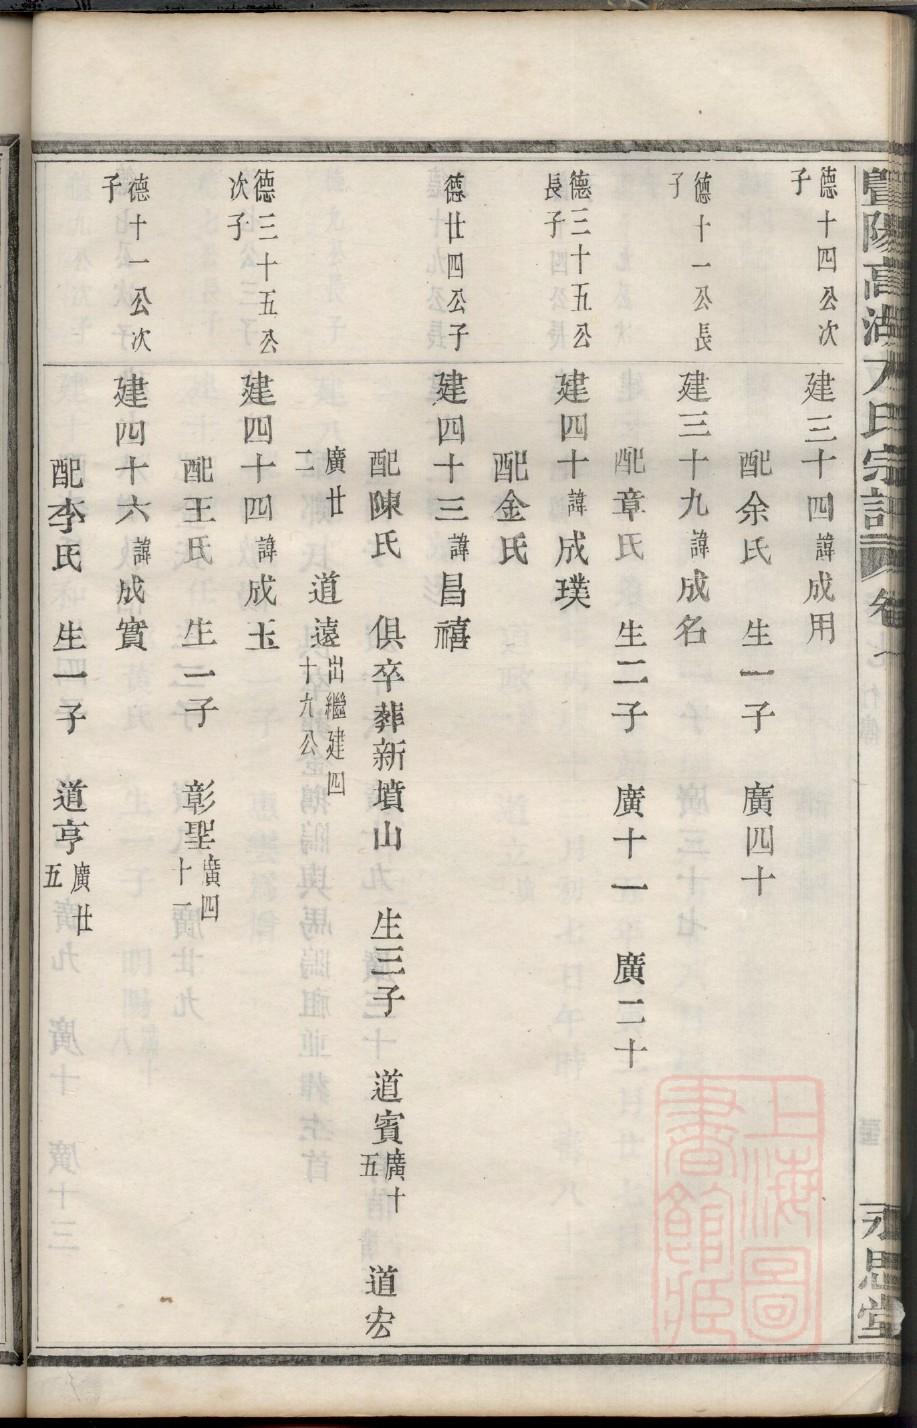 暨陽高湖
宗譜
卷
永思堂
德十四公次
子
建三十四諱成用
配余氏 生一子 廣四十
德十一公長
子
建三十九諱成名
配章氏 生二子 廣十一 廣二十
德三十五公
長子
建四十諱成璞
配金氏
德廿四公子
建四十三諱昌禧
配陳氏 俱卒葬新墳山 生三子 道賓廣十五 道宏
廣廿二 道遠出繼建四十九公
德三十五公
次子
建四十四諱成玉
配王氏 生一子 彰聖廣四十一
德十一公次
子
建四十六諱成實
配李氏 生一子 道亨廣廿五
上海圖
書館藏